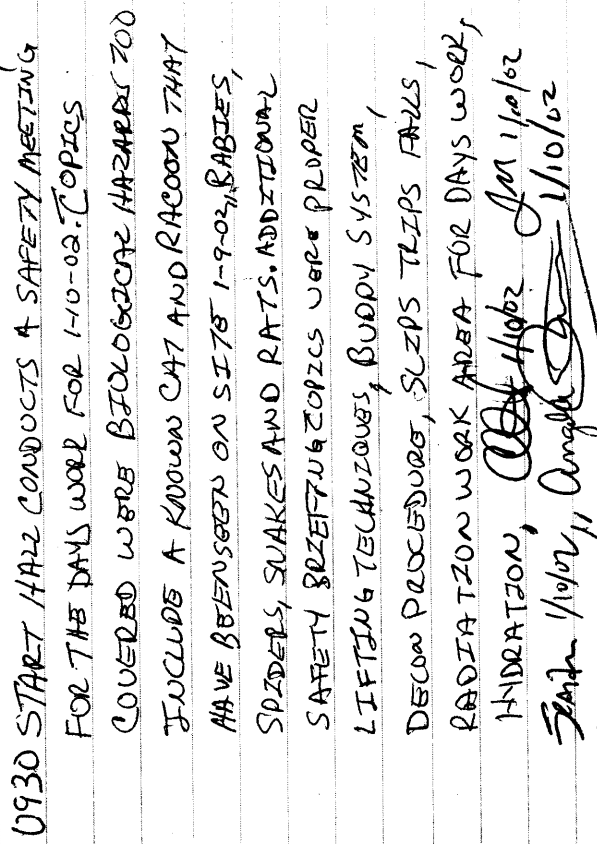 0930 START HALL CONDUCTS A SAFETY MEETING
FOR THE DAYS WORK FOR 1-10-02. TOPICS
COVERED WERE BIOLOGICAL HAZARDS TOO
INCLUDE A KNOWN CAT AND RACOON THAT
HAVE BEEN SEEN ON SITE 1-9-02, RABIES,
SPIDERS, SNAKES AND RATS. ADDITIONAL
SAFETY BRIEFING TOPICS WERE PROPER
LIFTING TECHNIQUES, BUDDY SYSTEM,
DECON PROCEDURE, SLIPS TRIPS FALLS,
RADIATION WORK AREA FOR DAYS WORK,
HYDRATION, 1/10/02 JM 1/10/02
1/10/02, Angela 1/10/02